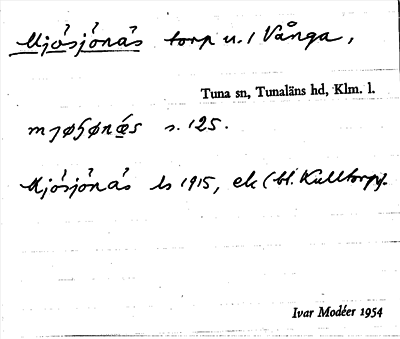 Mjösjönäs torp u. 1 Vånga,
Tuna sn, Tunaläns hd, Klm. l.
s. 125.
Mjösjönäs ls 1915, ek (bl. Kulltorp).
Ivar Modéer 1954